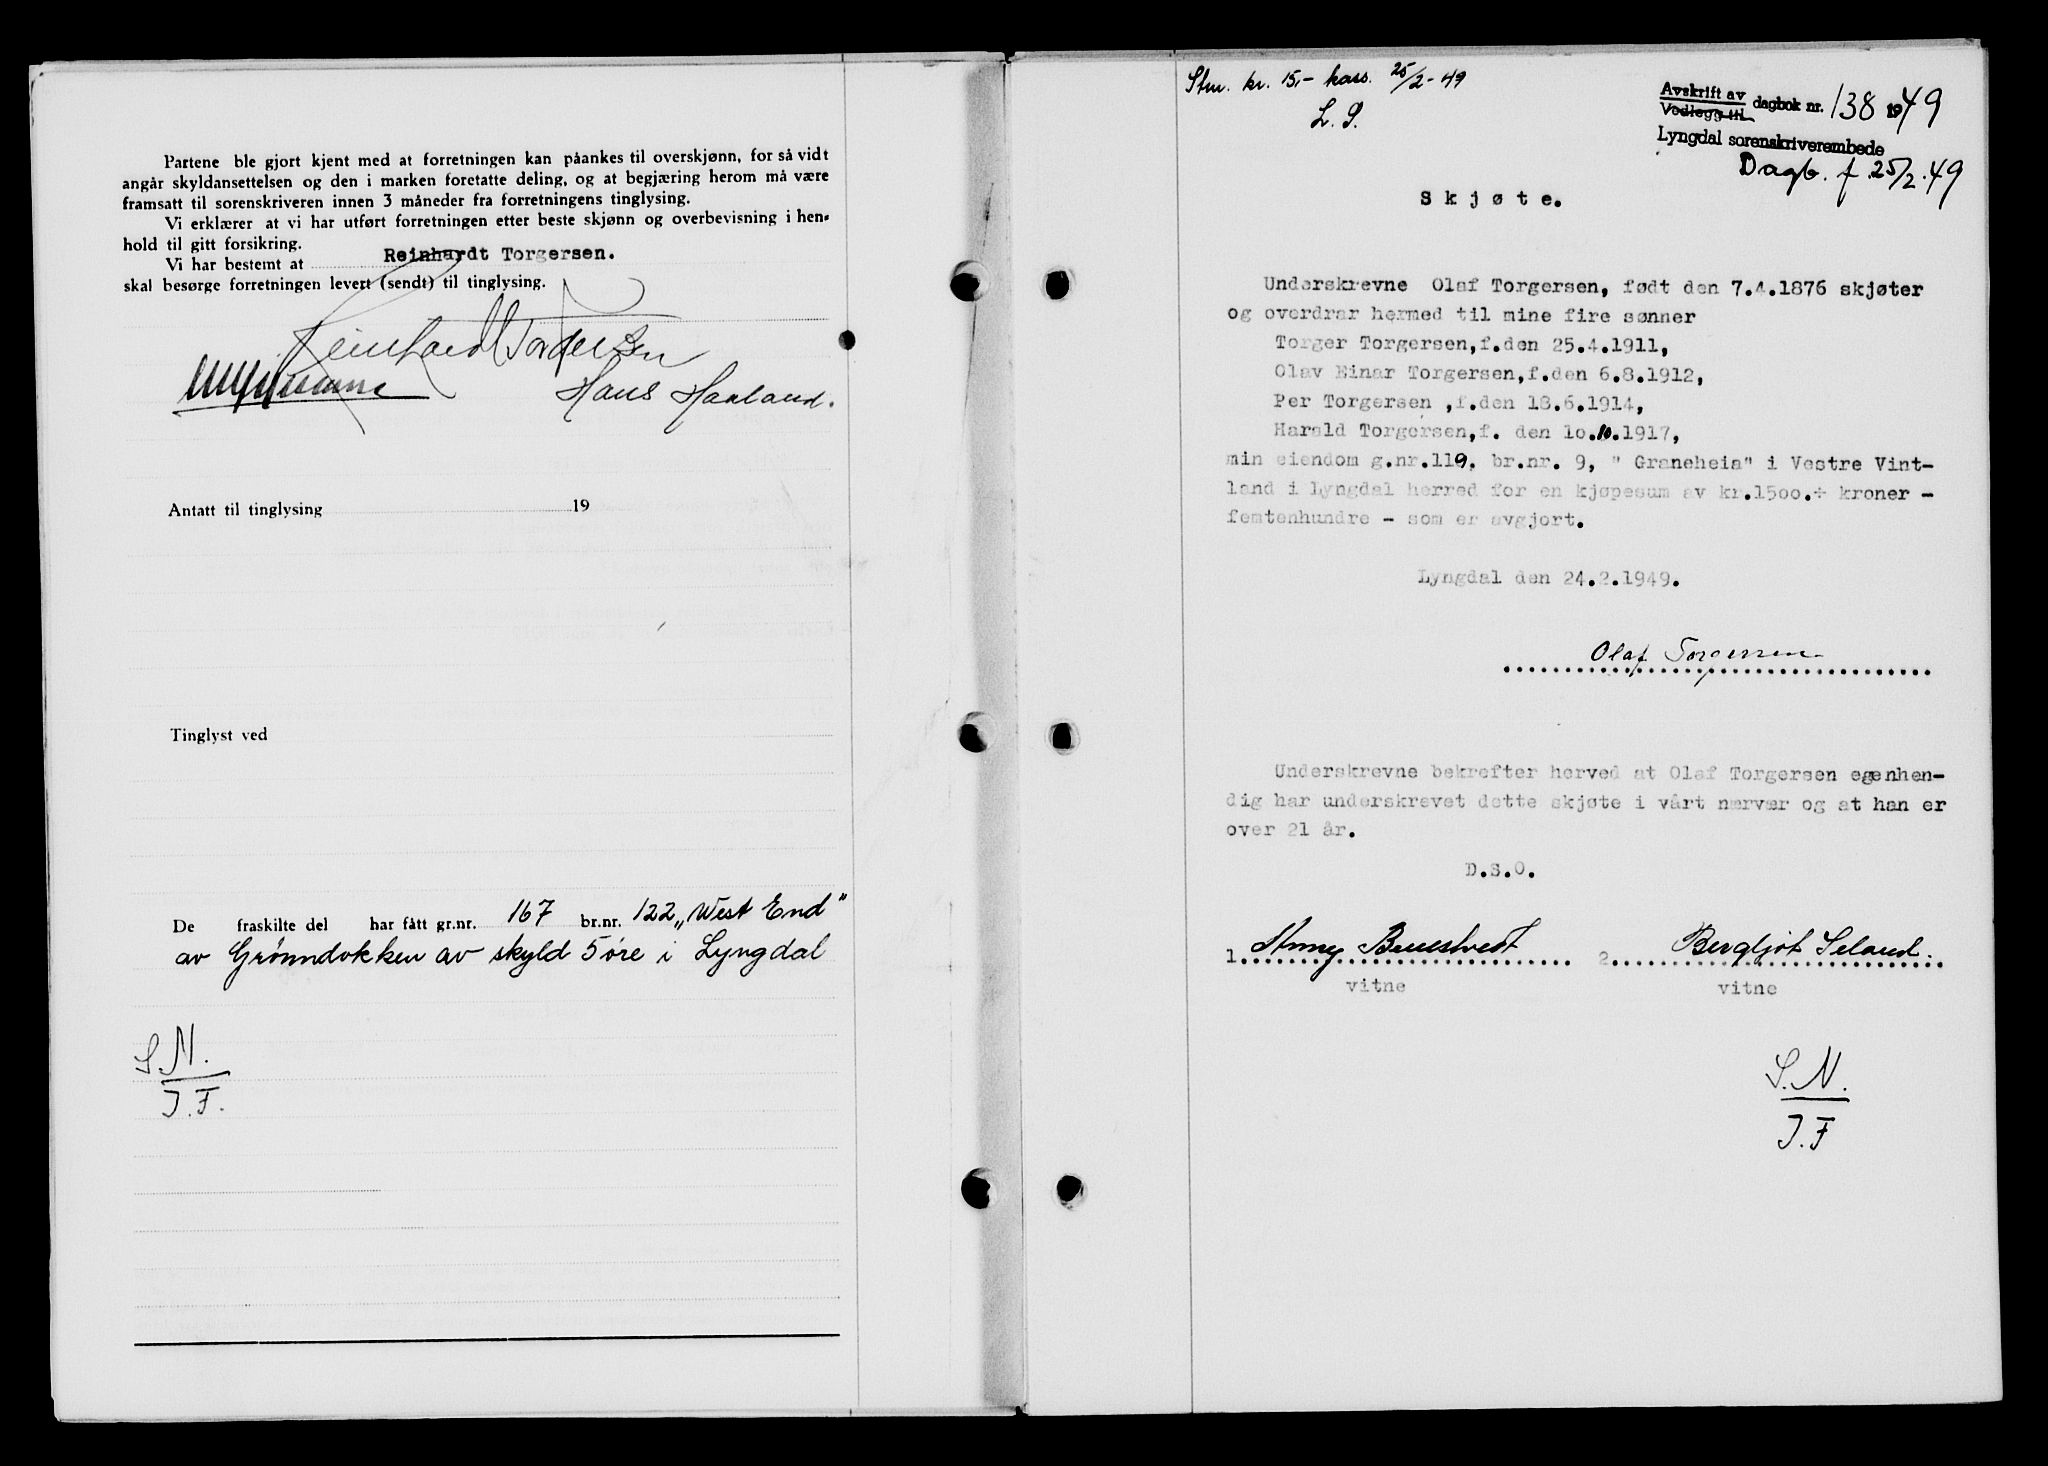 Partene ble gjort kjent med at forretningen kan påankes til overskjønn, for så vidt
angår skyldansettelsen og den i marken foretatte deling, og at begjæring herom må være
framsatt til sorenskriveren innen 3 måneder fra forretningens tinglysing.
Vi erklærer at vi har utført forretningen etter beste skjønn og overbevisning i hen-
hold til gitt forsikring.
Vi har bestemt at Reinhardt Torgersen.
skal besørge forretningen levert (sendt) til tinglysing.
Reinhardt Torgersen
Hans Haaland.
Antatt til tinglysing 19
Tinglyst ved
De fraskilte del har fått gr.nr. 167 br.nr. 122 „West End"
av Grønndokken av skyld 5 øre i Lyngdal
S.N.
J.F.
Stm. kr. 15,- kass. 25/2-49
L. S.
Avskrift av
Vedlegg til dagbok nr. 138 1949
Lyngdal sorenskriverembede
Dagb. f. 25/2.49
Skjøte.
Underskrevne Olaf Torgersen, født den 7.4.1876 skjøter
og overdrar hermed til mine fire sønner
Torger Torgersen,f.den 25.4.1911,
Olav Einar Torgersen,f.den 6.8.1912,
Per Torgersen ,f.den 18.6.1914,
Harald Torgersen,f. den 10.10.1917,
min eiendom g.nr.119. br.nr. 9, " Graneheia" i Vestre Vint-
land i Lyngdal herred for en kjøpesum av kr.1500.÷ kroner -
femtenhundre - som er avgjort.
Lyngdal den 24.2.1949.
Olaf Torgersen
Underskrevne bekrefter herved at Olaf Torgersen egenhen-
dig har underskrevet dette skjøte i vårt nærvær og at han er
over 21 år.
D.S.O.
1. 2. Bergljot Seland.
vitne vitne
S.N.
J.F